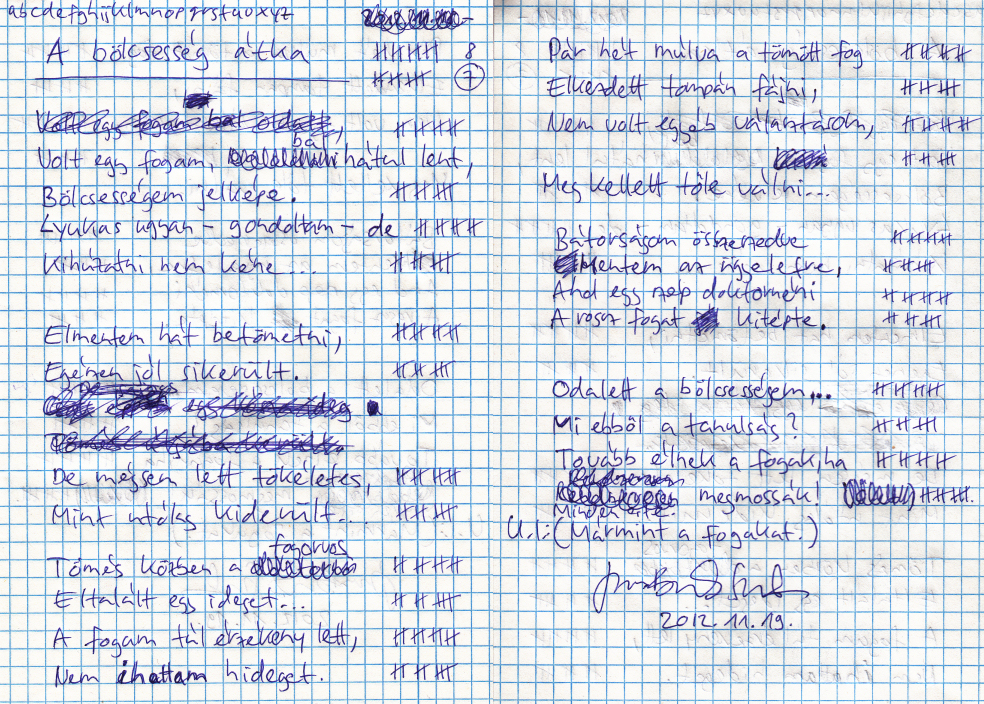 abcdefghijklmnopqrstuvxyz
A bölcsesség átka
8
7
Volt egy fogam, bal hátul lent,
Bölcsességem jelképe.
Lyukas ugyan – gondoltam – de
Kihúzatni nem kéne...
Elmentem hát betömetni,
Egészen jól sikerült.
De mégsem lett tökéletes,
Mint utólag kiderült...
Tömés közben a fogorvos
Eltalált egy ideget...
A fogam túl érzékeny lett,
Nem ihattam hideget.
Pár hét múlva a tömött fog
Elkezdett tompán fájni,
Nem volt egyéb választásom,
Meg kellett tőle válni...
Bátorságom összeszedve
Mentem az ügyeletre,
Ahol egy szép doktornéni
A rossz fogat kitépte.
Odalett a bölcsességem...
Mi ebből a tanulság?
Tovább élnek a fogak, ha
Minden este megmossák!
U.i.: (Mármint a fogakat.)
2012.11.19.